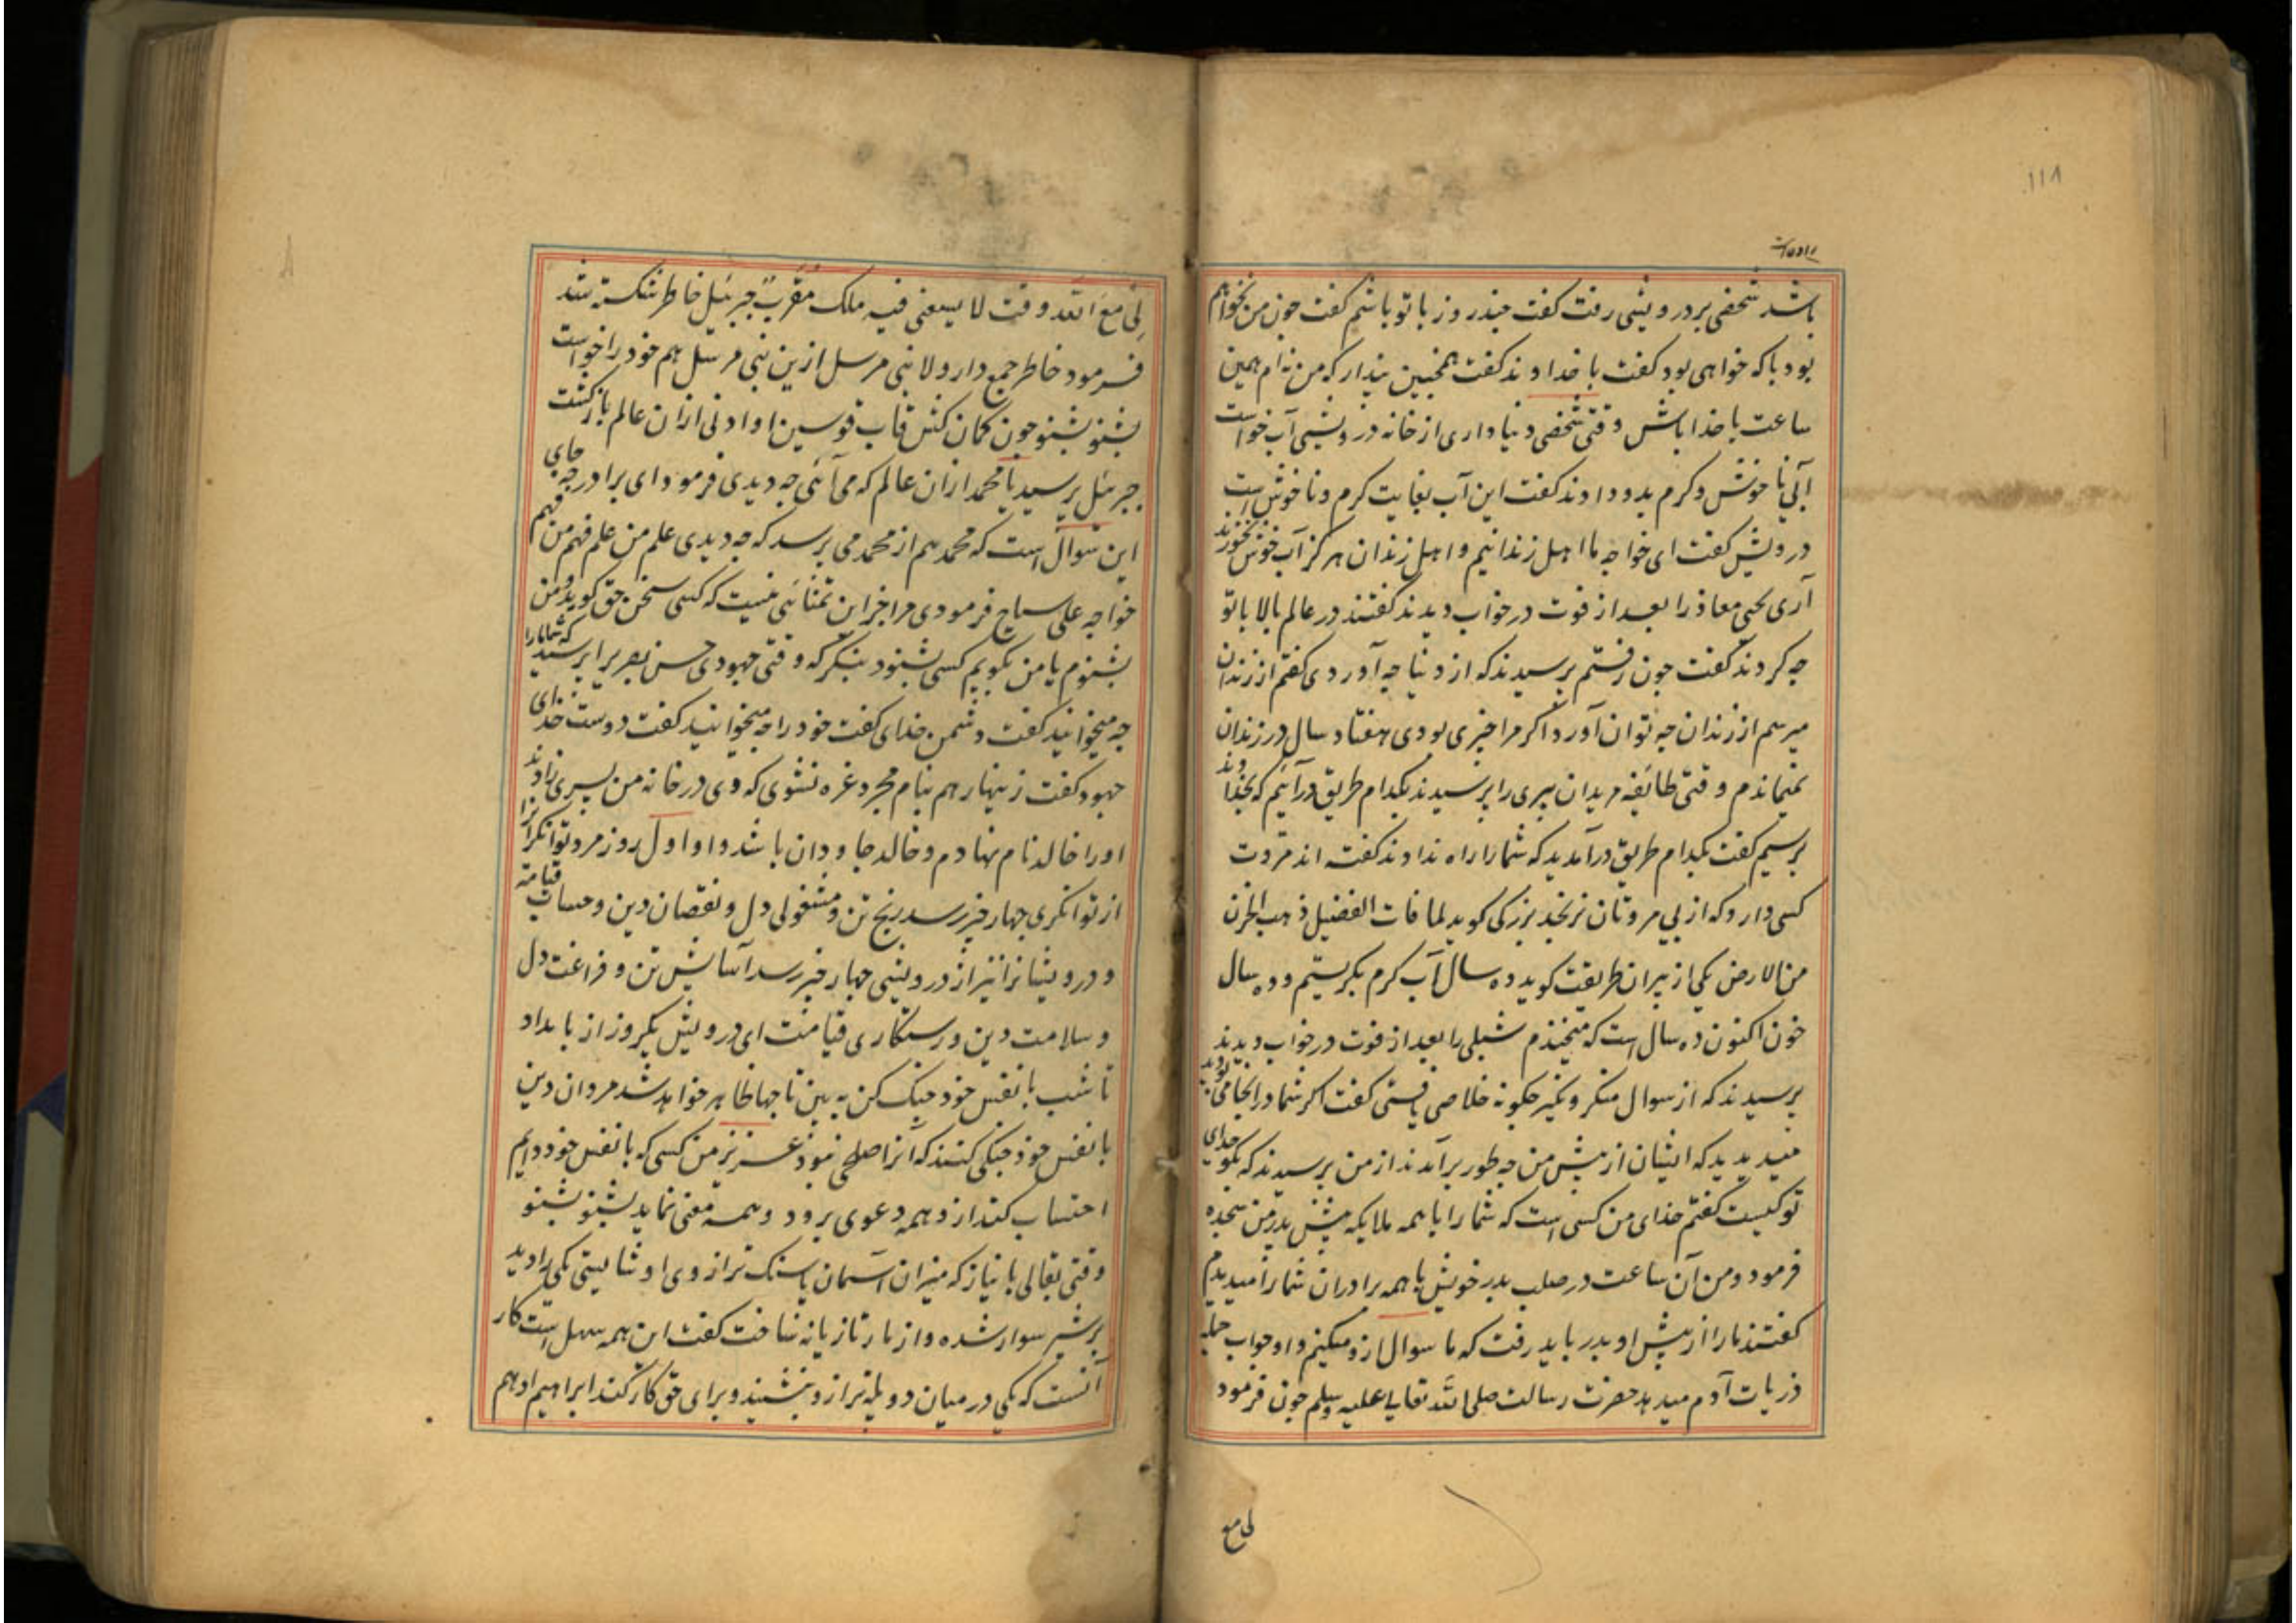 ۱۱۸
باشد شخصی بر درویشی رفت گفت چندروز با تو باشم گفت چون من نخواهم
بود با که خواهی بود گفت با خداوند گفت همچنین پندار که من نه ام همین
ساعت با خدا باش وقتی شخصی دنیاداری از خانه درویشی آب خواست
آبی ناخوش و گرم بدو دادند گفت این آب بغایت گرم و ناخوش است
درویش گفت ای خواجه ما اهل زندانیم و اهل زندان هرگز آب خوش نخورند
آری یحیی معاذ را بعد از فوت در خواب دیدند گفتند در عالم بالا با تو
چه کردند گفت چون رفتم پرسیدند که از دنیا چه آوردی گفتم از زندان
میرسم از زندان چه توان آورد اگر مرا چیزی بودی هفتاد سال در زندان
نمیماندم وقتی طائفه مریدان پیری را پرسیدند بکدام طریق درآئیم که بخداوند
برسیم گفت بکدام طریق درآمدید که شما را راه ندادند گفته اند مروت
کسی دارد که از بی مروتان نرنجد بزرگی گوید لما فات الفضیل ذهب الحزن
من الارض یکی از پیران طریقت گوید ده سال آب گرم بگریستم و ده سال
خون اکنون ده سال است که میخندم شبلی را بعد از فوت در خواب دیدند
پرسیدند که از سوال منکر و نکیر چگونه خلاصی یافتی گفت اگر شما در انجا می بودید
میدیدید که ایشان از پیش من چه طور برآمدند از من پرسیدند که بگو خدای
تو کیست گفتم خدای من کسی است که شما را با همه ملایکه پیش پدر من سجده
فرمود و من آن ساعت در صلب پدر خویش با همه برادران شما را میدیدم
گفتند ما را از پیش او بدر باید رفت که ما سوال ازو میکنیم و او جواب جمله
ذریات آدم میدهد حضرت رسالت صلی الله تعالی علیه وسلم چون فرمود
لی مع
لی مع الله وقت لا یسعنی فیه ملک مقرب جبرئیل خاطر شکسته شد
فرمود خاطر جمع دار ولا نبی مرسل ازین نبی مرسل هم خود را خواست
بشنو بشنو چون کمان کش قاب قوسین او ادنی ازان عالم بازگشت
جبرئیل پرسید یا محمد ازان عالم که می آئی چه دیدی فرمود ای برادر چه جای
این سوال است که محمد هم از محمد می پرسد که چه دیدی علم من علم فهم من فهم
خواجه علی سیاح فرمودی مرا جز این تمنائی نیست که کسی سخن حق گوید و من
بشنوم یا من بگویم کسی بشنود بنگر که وقتی جهودی حسن بصری را پرسید که شما ما را
چه میخوانید گفت دشمن خدای گفت خود را چه میخوانید گفت دوست خدای
جهود گفت زینهار هم بنام مجرد غره نشوی که وی در خانه من پسری زادند
او را خالد نام نهادم و خالد جاودان باشد و او اول روز مرد توانگرانرا
از توانگری چهار چیز رسد رنج تن و مشغولی دل و نقصان دین و حساب قیامت
و درویشانرا نیز از درویشی چهار چیز رسد آسایش تن و فراغت دل
و سلامت دین و رستگاری قیامت ای درویش یکروز از بامداد
تا شب با نفس خود جنگ کن به بین تا چها ظاهر خواهد شد مردان دین
با نفس خود جنگی کنند که آنرا صلحی نبود عزیز من کسی که با نفس خود دایم
احتساب کند ازو همه دعوی برود و همه معنی نماید بشنو بشنو
وقتی بقالی با نیاز که میزان آسمان پاسنگ ترازوی او شایستی یکی را دید
بر شیر سوار شده و از مار تازیانه ساخت گفت این همه سهل است کار
آنست که یکی در میان دو پله ترازو بنشیند و برای حق کار کند ابراهیم ادهم